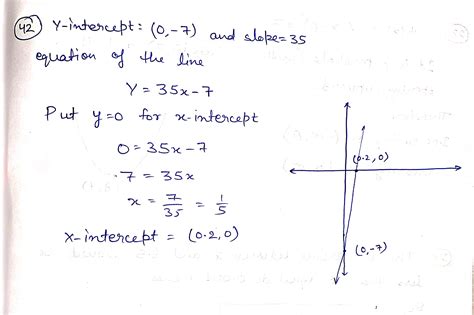 42 Y-intercept: (0,-7) and slope=35
equation of the line
Y = 35x-7
Put y=0 for x-intercept
0 = 35x-7
7 = 35x
x = 7/35 = 1/5
x-intercept = (0.2,0)
(0.2,0)
(0,-7)